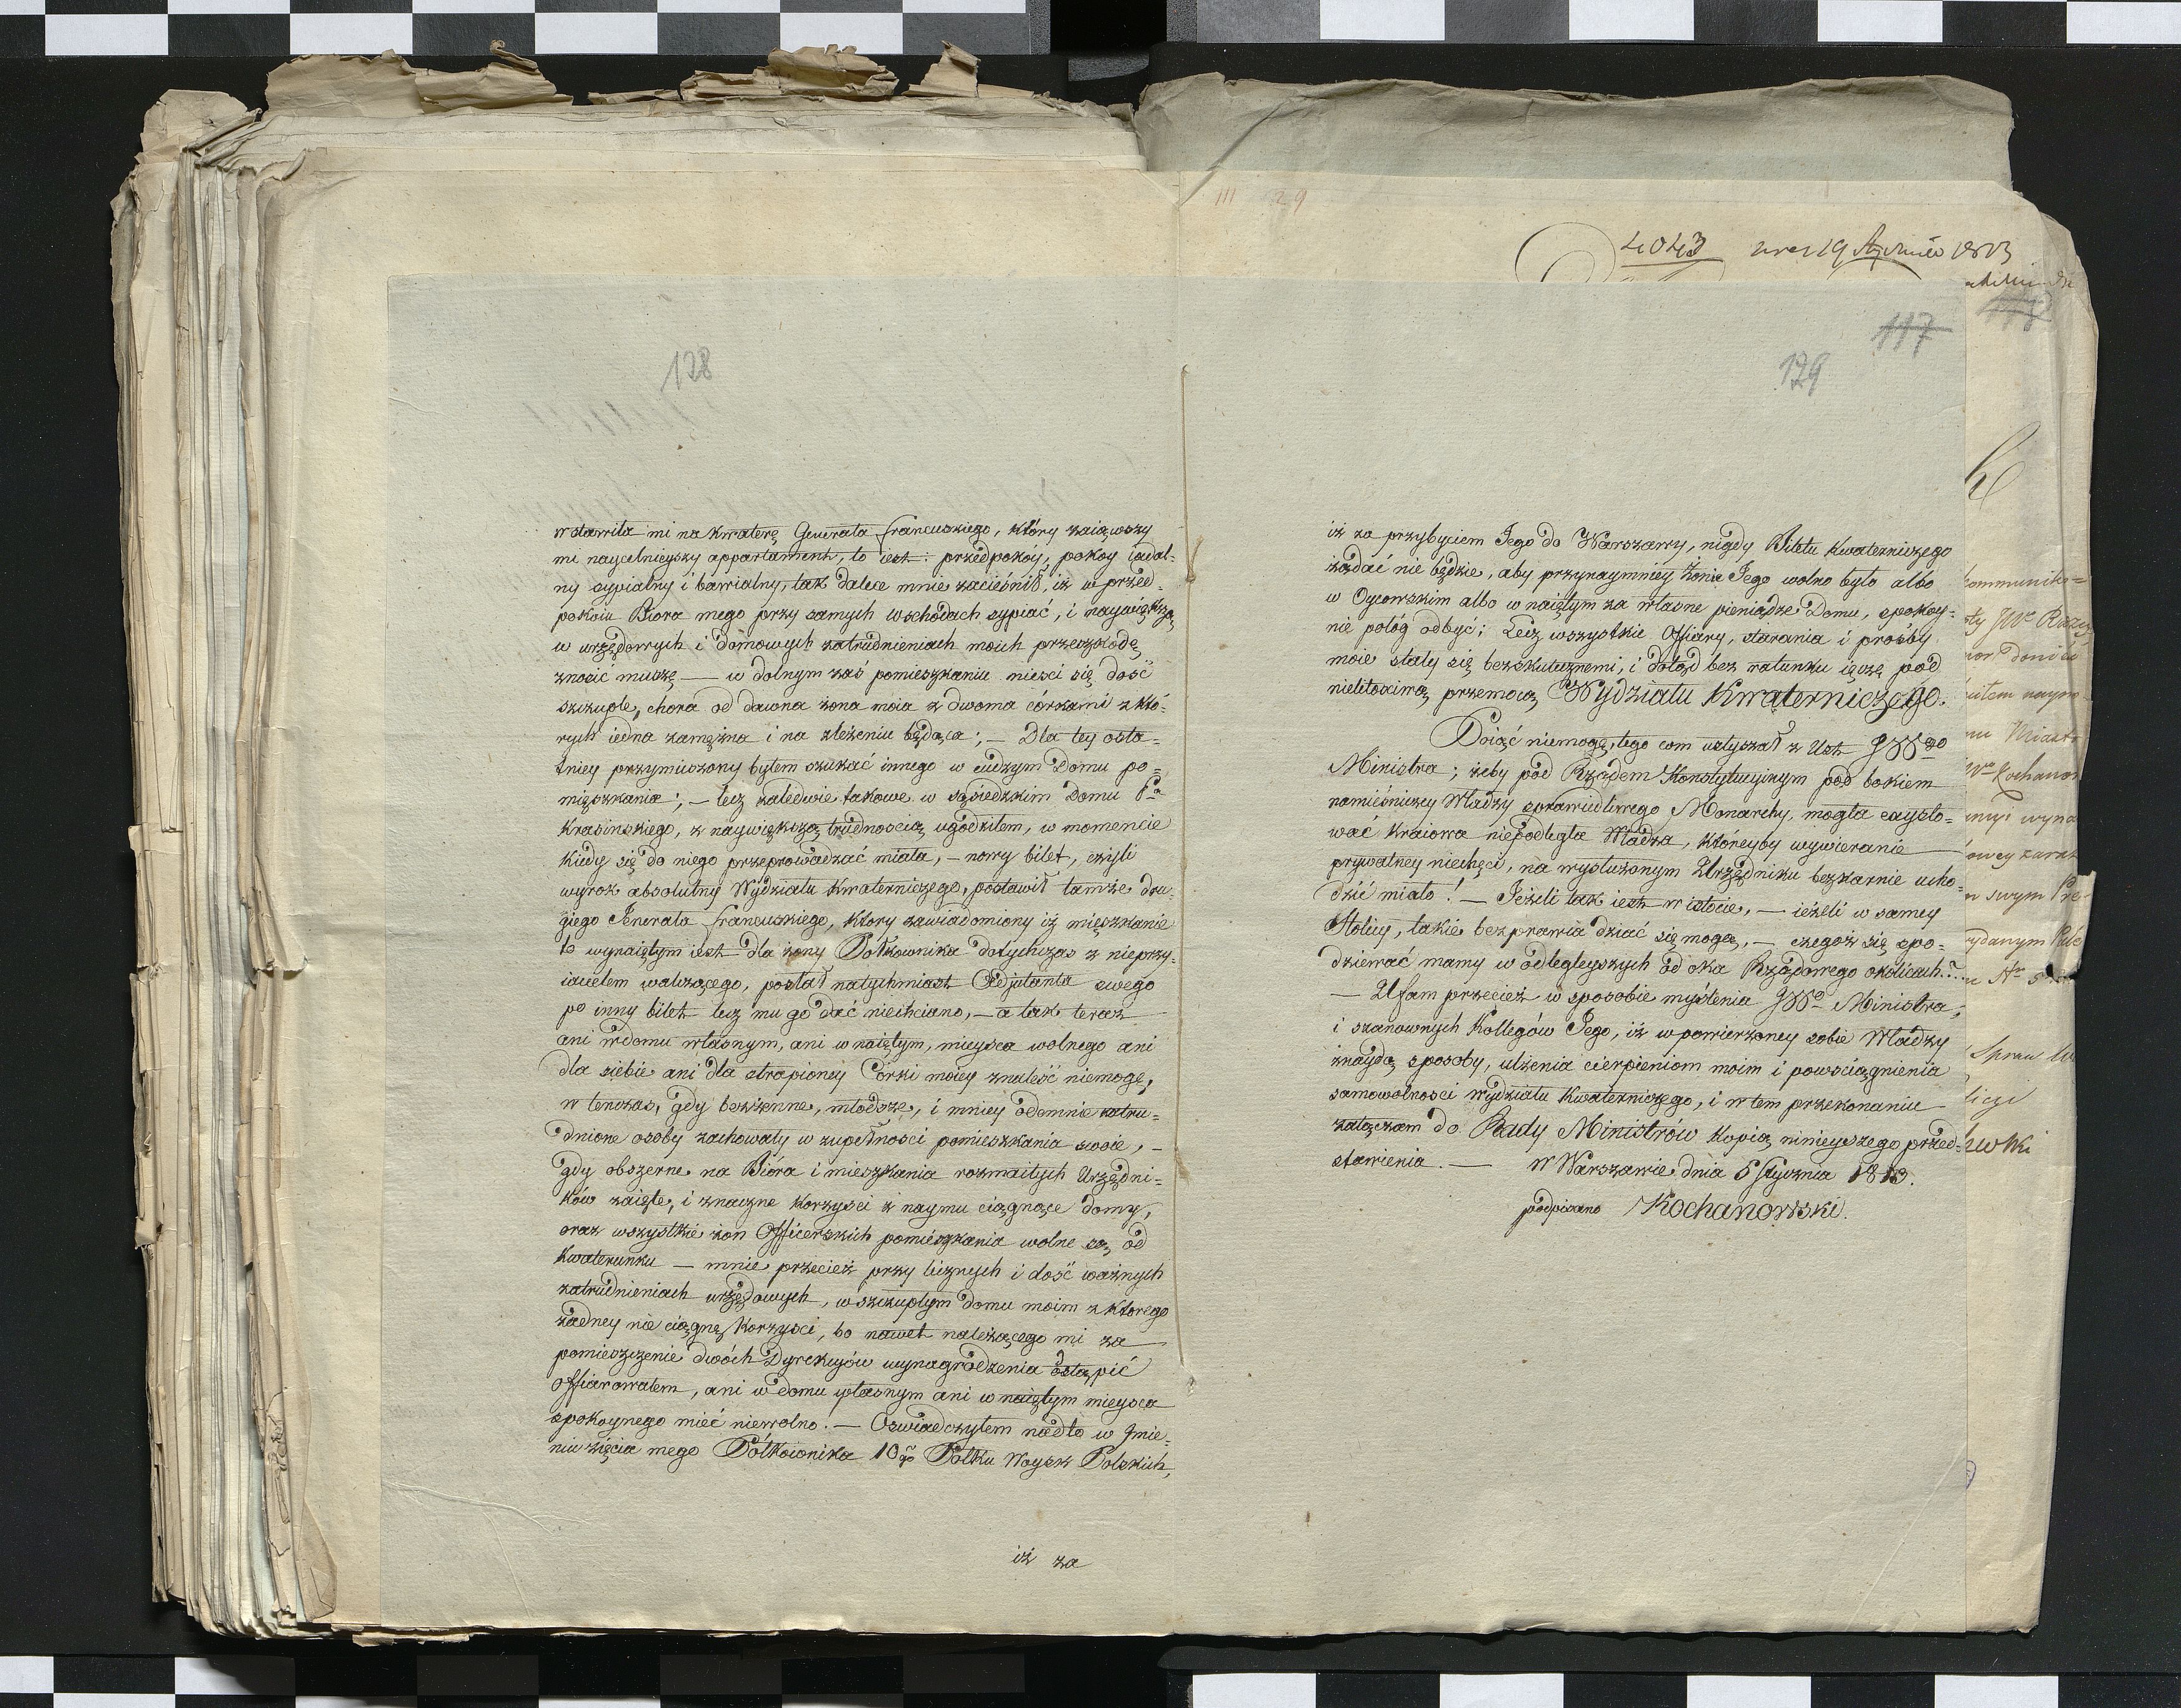 128
wstawiła mi na kwaterę Generała francuskiego, który zaiąwszy
mi naycelnieyszy appartament, to iest: przedpokóy, pokoy iadal-
ny sypialny i bawialny, tak dalece mnie zacieśnił, iż w przed-
pokoiu Biora mego przy samych wschodach sypiać, i naywiększą
w urzędowych i domowych zatrudnieniach moich przeszkodę
znosić muszę — w dolnym zaś pomieszkaniu mieści się dość
szczupłe, chora od dawna żona moia z dwoma córkami z któ-
rych iedna zamężna i na zleżeniu będąca; — Dla tey osta=
tniey przymuszony byłem szukać innego w cudzym Domu po=
mięszkania; — lecz zaledwie takowe w sąsiedzkim Domu Pa
Krasinskiego, z naywiększą trudnością ugodziłem, w momencie
kiedy się do niego przeprowadzać miała, — nowy bilet, czyli
wyrok absolutny Wydziału Kwaterniczego, postawił tamże dru-
giego Jenerała francuskiego, ktory zawiadomiony iż mięszkanie
to wynaiętym iest dla żony Półkownika dotychczas z nieprzy-
iacielem walczącego, posłał natychmiast Adjutanta swego
po inny bilet lecz mu go dać niechciano, — a tak teraz
ani w domu własnym, ani w naiętym, mieysca wolnego ani
dla siebie ani dla strapioney Córki moiey znaleść niemogę,
w tenczas, gdy bezżenne, młodsze, i mniey odemnie zatru=
dnione osoby zachowały w zupełności pomieszkania swoie, —
gdy obszerne na Bióra i mieszkania rozmaitych Urzędni=
ków zaięte, i znaczne korzyści z naymu ciągnące domy,
oraz wszystkie żon Officerskich pomieszkania wolne są od
kwaterunku — mnie przecież przy licznych i dość ważnych
zatrudnieniach urzędowych, w szczupłym domu moim z ktorego
żadney nie ciągnę korzyści, bo nawet należącego mi za
pomieszczenie dwóch Dyrekcyów wynagrodzenia ostąpić
offiarowałem, ani w domu własnym ani w naiętym mieysca
spokoynego mieć niewolno. — Oswiadczyłem nadto w Jmie=
niu zięcia mego Półkownika 10go Półku Woysk Polskich,
iż za
III 29
4043 19 Stycznia 1813
117
129
iż za przybyciem Jego do Warszawy, nigdy Biletu kwaterniczego
żądać nie będzie, aby przynaymniey żonie Jego wolno było albo
w Oycowskim albo w naiętym za własne pieniądze Domu, spokoy-
nie połóg odbyć; Lecz wszystkie offiary, starania i prośby
moie stały się bezskutecznemi, i dotąd bez ratunku ięczę pod
nielitościwą przemocą Wydziału Kwaterniczego.
Poiąć niemogę, tego com usłyszał z Ust JWgo
Ministra; żeby pod Rządem Konstytucyinym pod bokiem
namiestniczey Władzy sprawiedliwego Monarchy, mogła exysto=
wać kraiowa niepodległa Władza, któreyby wywieranie
prywatney niechęci, na wysłużonym Urzędniku bezkarnie ucho=
dzić miało! — Jeżeli tak iest w istocie, — ieżeli w samey
Stolicy, takie bezprawia dziać się mogą, — czegoż się spo=
dziewać mamy w odległeyszych od oka Rządowego okolicach?..
— Ufam przecież w sposobie myślenia JWo Ministra,
i szanownych Kollegów Jego, iż w powierzoney sobie Władzy
znaydą sposoby, ulżenia cierpieniom moim i powściągnienia
samowolności wydziału kwaterniczego, i w tem przekonaniu
załączam do Rady Ministrów kopią ninieyszego przed=
stawienia. — w Warszawie dnia 5 Stycznia 1813.
podpisano Kochanowski.